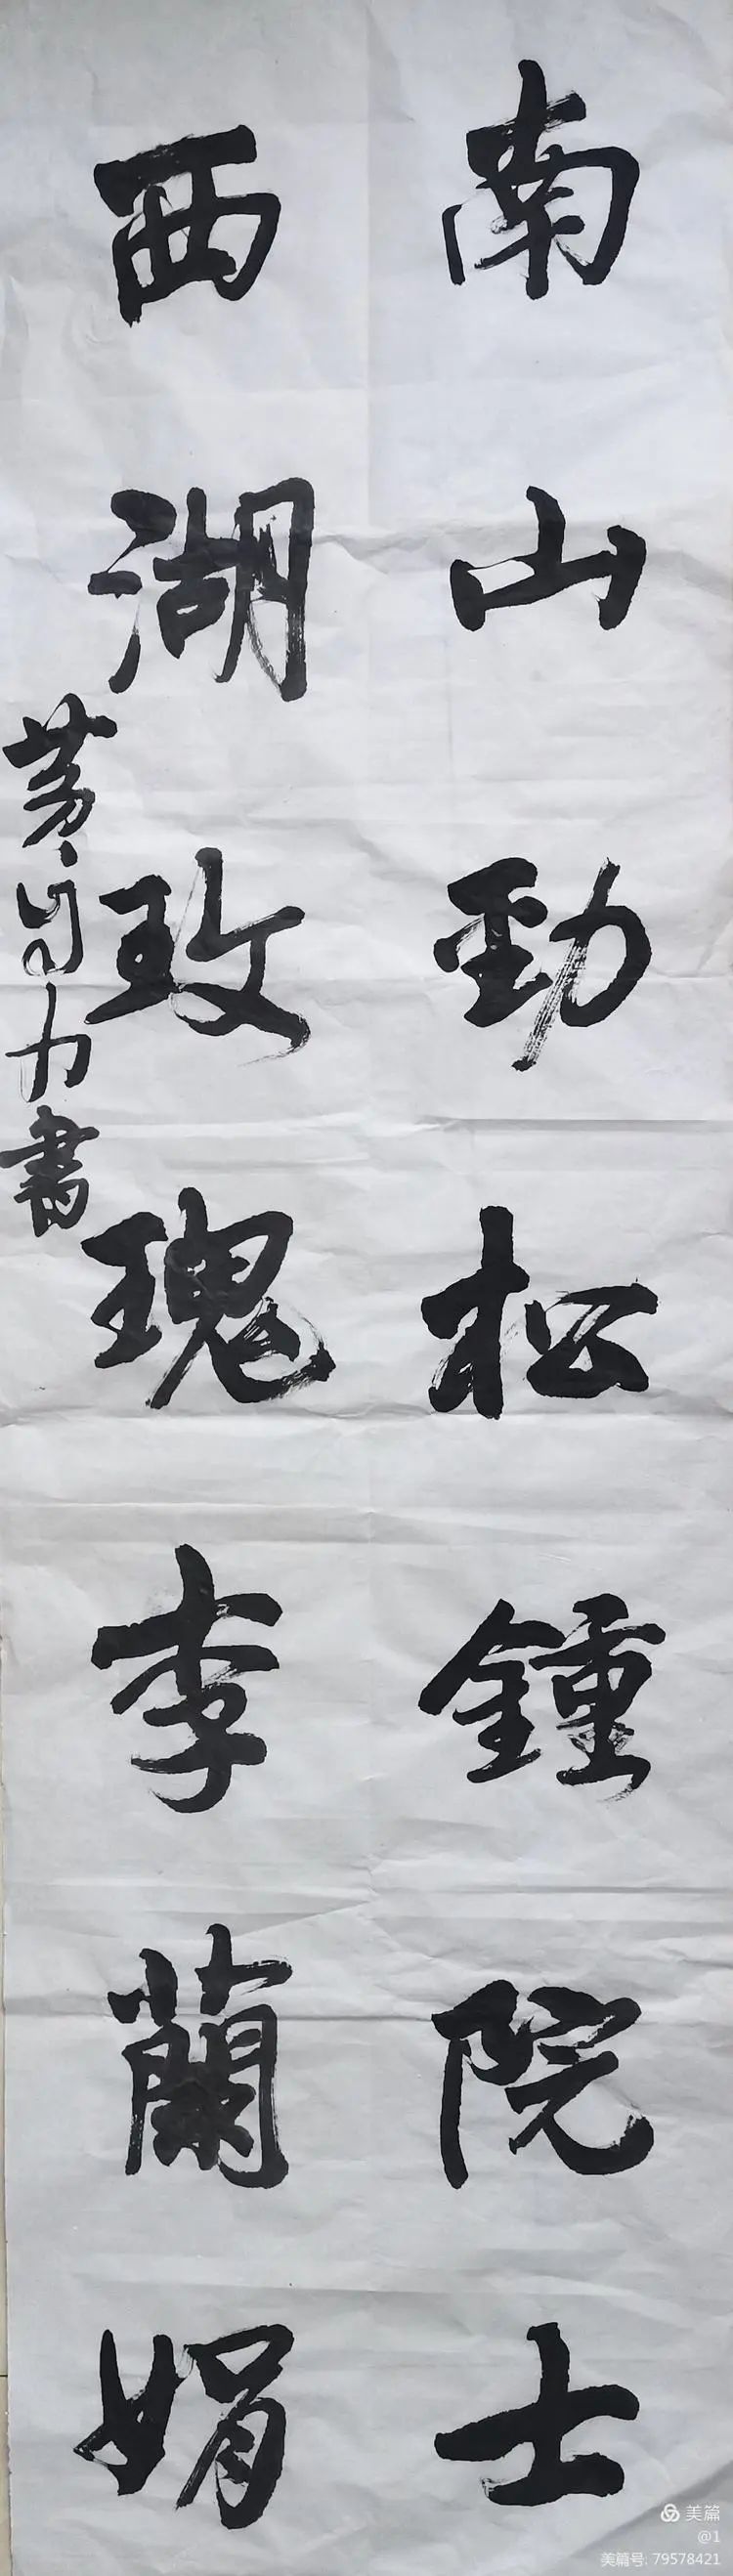 南山勁松鍾院士
西湖玫瑰李蘭娟
力書
美篇
@1
美篇号: 79578421